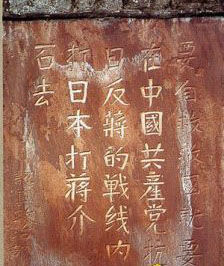 要自救就要
在中國共產党抗
日反蔣的戰线内
打日本打蔣介
石去